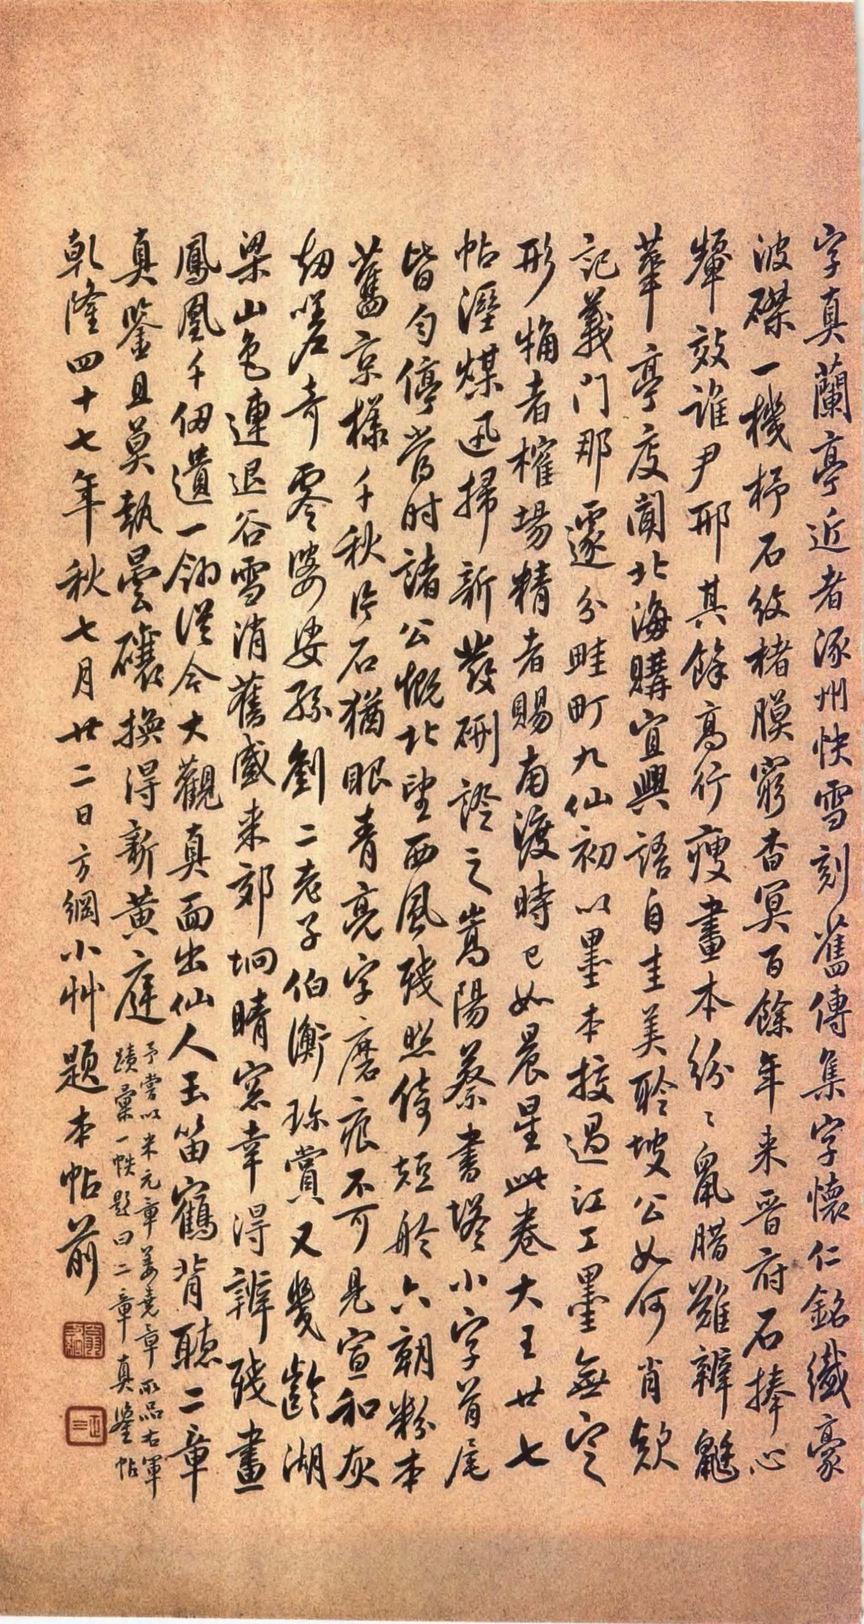 字真蘭亭近者涿州快雪刻舊傳集字懷仁銘纖豪
波磔一機杼石紋楮膜窮杳冥百餘年来晋府石捧心
顰效誰尹邢其餘高行瘦畫本紛〻鼠腊難辨
華亭度閣北海購宜興語自圭美聆坡公如何肖欵
記義門那遽分畦町九仙初以墨本授過江工墨無定
形犕者榷場精者賜南渡時已如晨星此卷大王廿七
帖溼煤迅掃新發硎證之嵩陽蔡書塔小字首尾
皆勻停當时諸公慨北望西風殘照倚短舲六朝粉本
舊京樣千秋片石猶眼青亮字磨痕不可見宣和灰
劫嗟奇零婆娑孫劉二老子伯衡珎賞又幾齡湖
梁山色連退谷雪消舊感来郊坰晴窓幸得辨殘畫
鳳凰千仞遺一翎從今大觀真面出仙人玉笛鶴背聽二章
真鑒且莫執曇礦換得新黃庭
予嘗以米元章姜堯章所品右軍
蹟彙一帙題曰二章真鑒帖
乾隆四十七年秋七月廿二日方綱小艸題本帖前